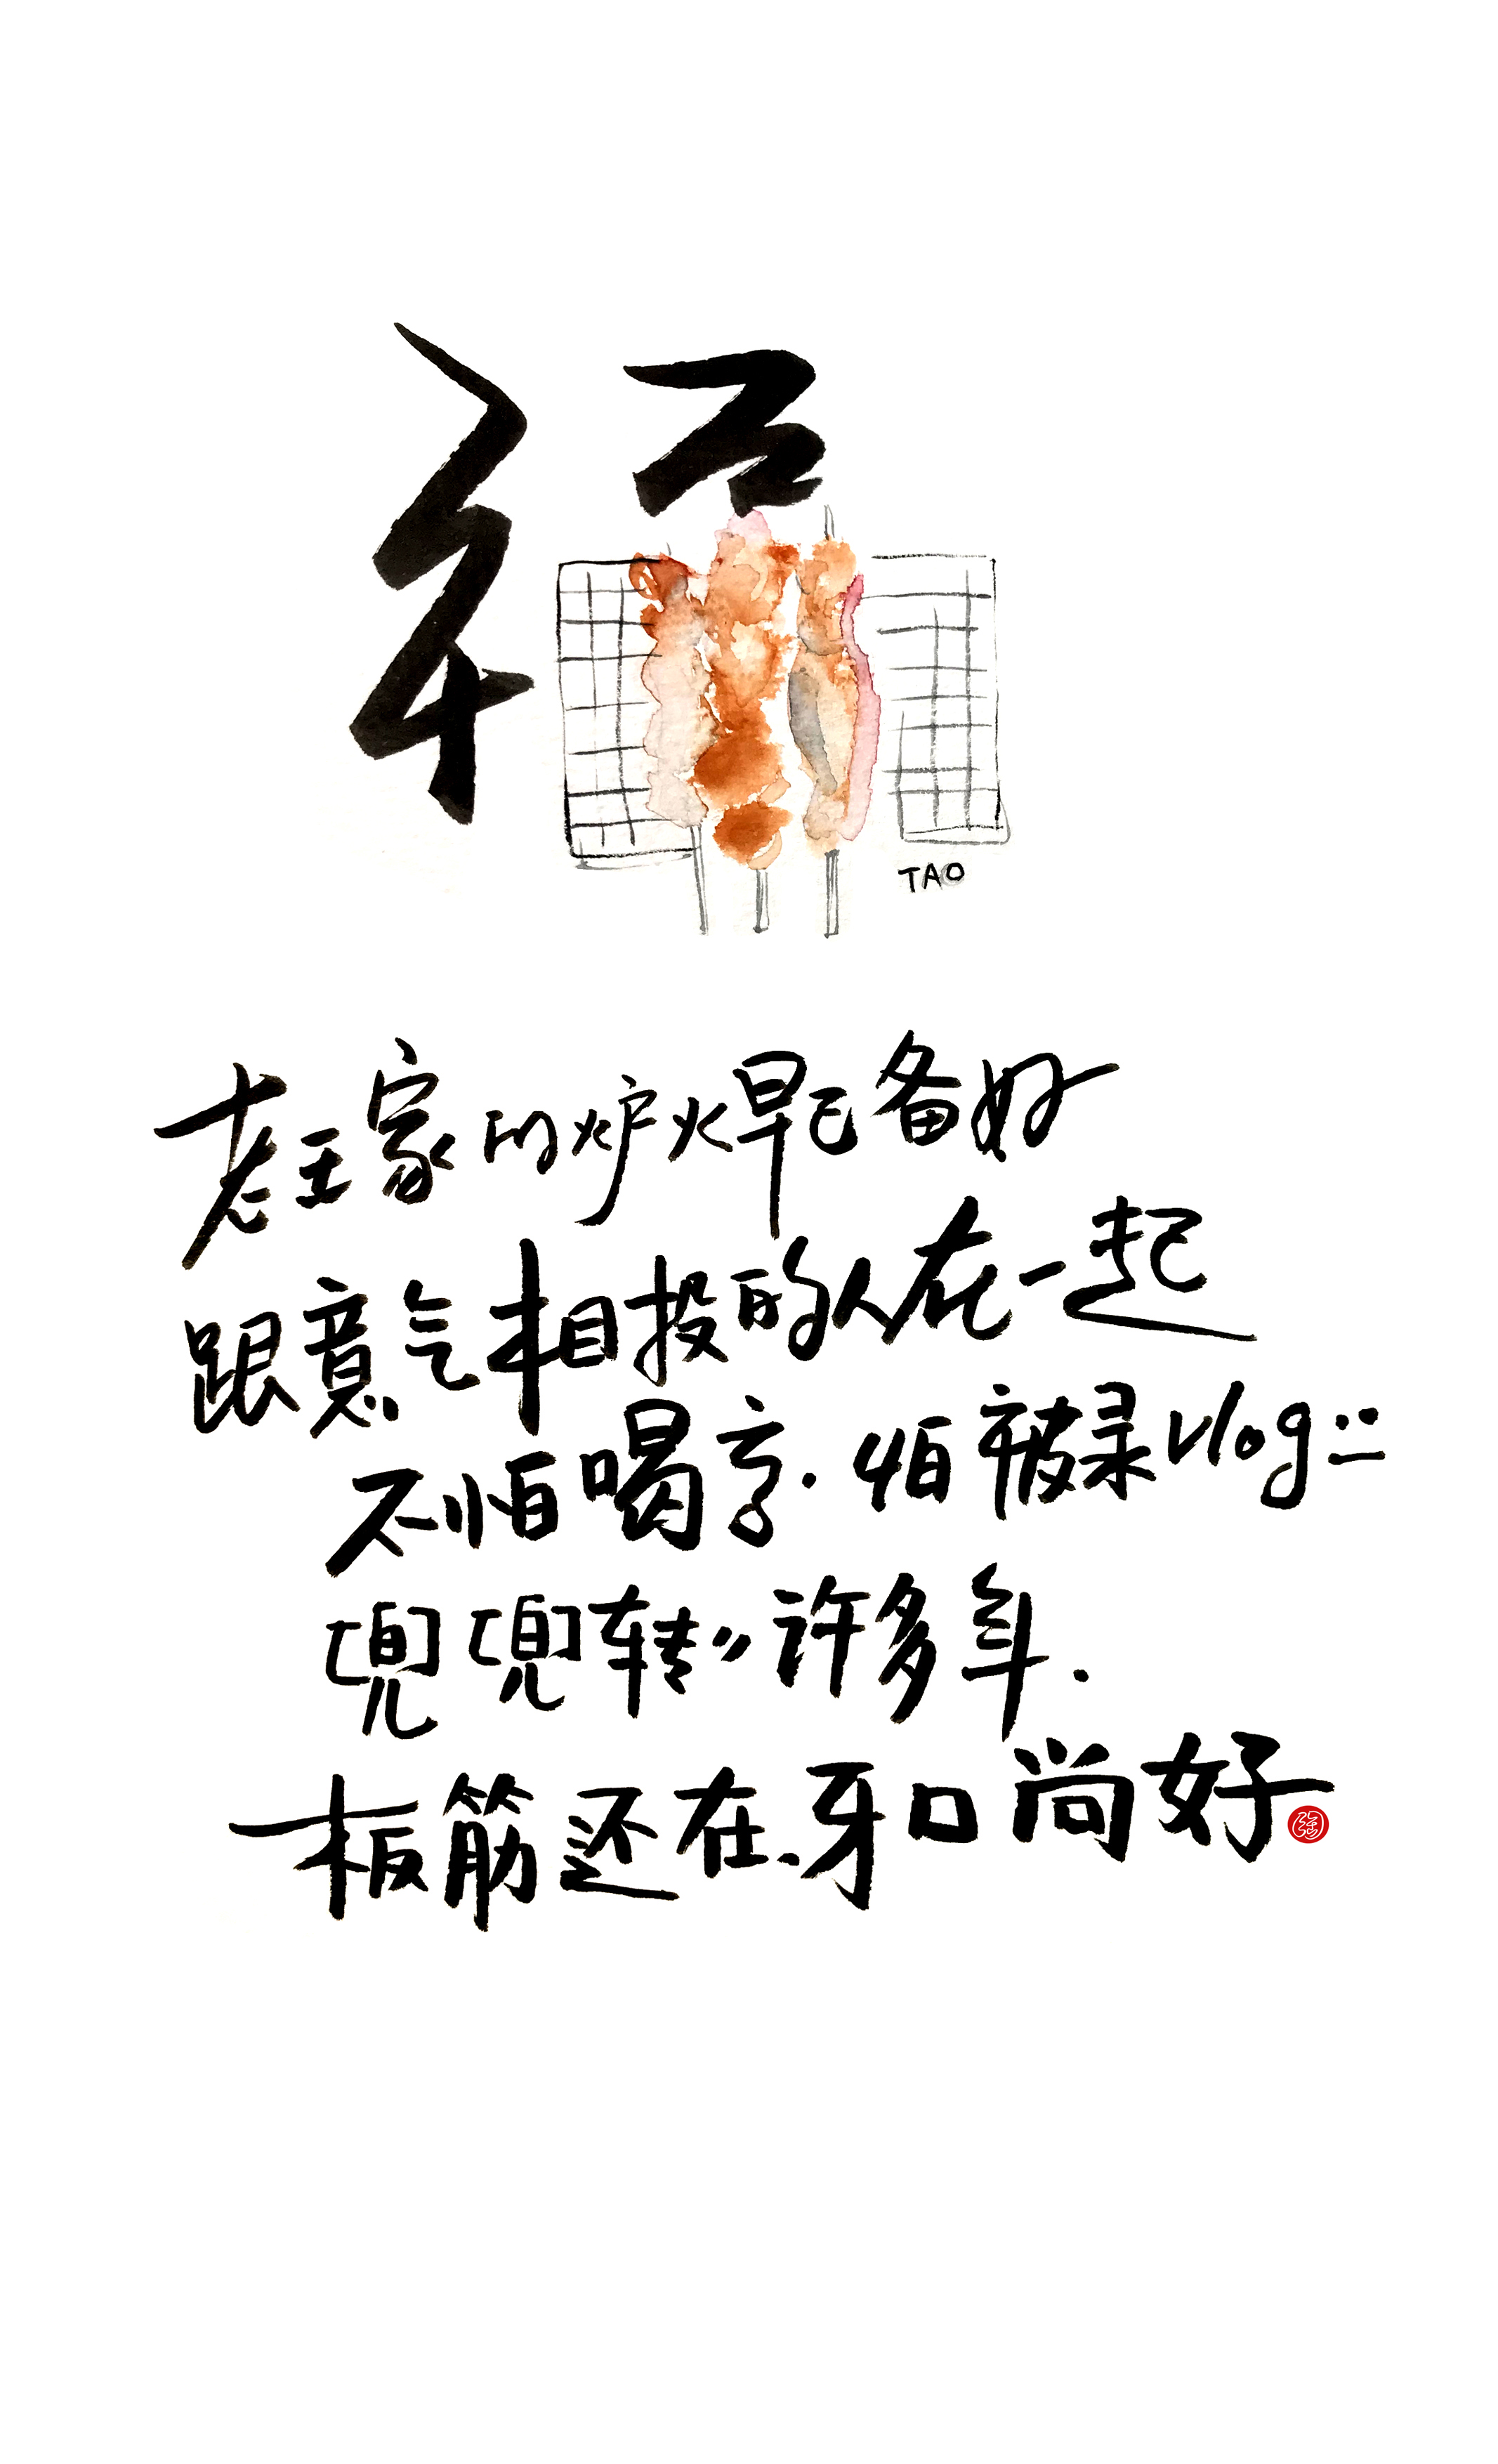 福
TAO
老王家的炉火早已备好
跟意气相投的人在一起
不怕喝高.怕被录vlog
兜兜转〃许多年.
板筋还在、牙口尚好
强